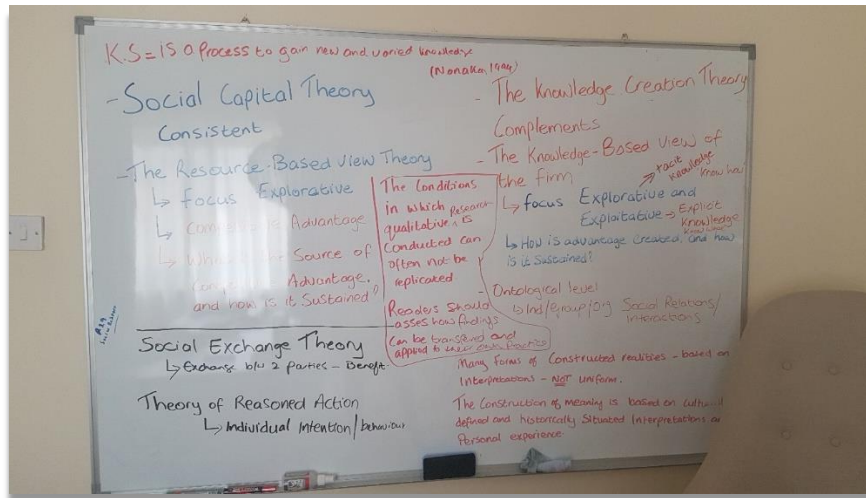 K.S = is a process to gain new and varied knowledge
(Nonaka, 1994)
- Social Capital Theory
Consistent
- The Resource-Based View Theory
↳ focus Explorative
↳ Advantage
↳ the Source of
Advantage,
and how is it Sustained?
Social Exchange Theory
↳ Exchange b/w 2 Parties - Benefit.
Theory of Reasoned Action
↳ Individual Intention/behaviour
The Conditions
in which Research
qualitative, is
Conducted can
often not be
replicated
Readers should
asses how findings
Can be transfered and
applied to their own
- The Knowledge Creation Theory
Complements
- The Knowledge-Based View of
the firm
tacit
knowledge
know how
↳ focus Explorative and
Exploitative → Explicit
Knowledge
↳ How is advantage Created, and how
is it Sustained?
- Ontological level
↳ Ind/group/org Social Relations/
Interactions
Many forms of Constructed realities - based on
Interpretations - NOT uniform.
The Construction of meaning is based on
defined and historically Situated Interpretations
Personal experience.